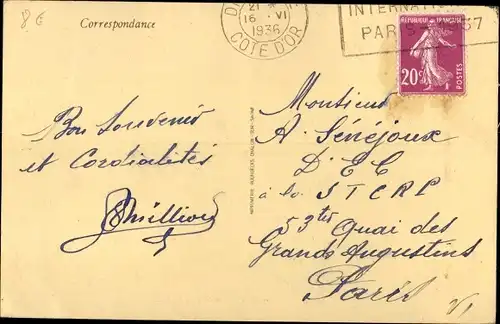 8 €
Correspondance
21
16 VI
1936
COTE D'OR
INTERNATI
PARIS 1937
RÉPUBLIQUE FRANÇAISE
20c
POSTES
Bon Souvenir
et Cordialités
Monsieur
A. Sénéjoux
D' E C
à la S T C R P
53 ter Quai des
Grands Augustins
Paris